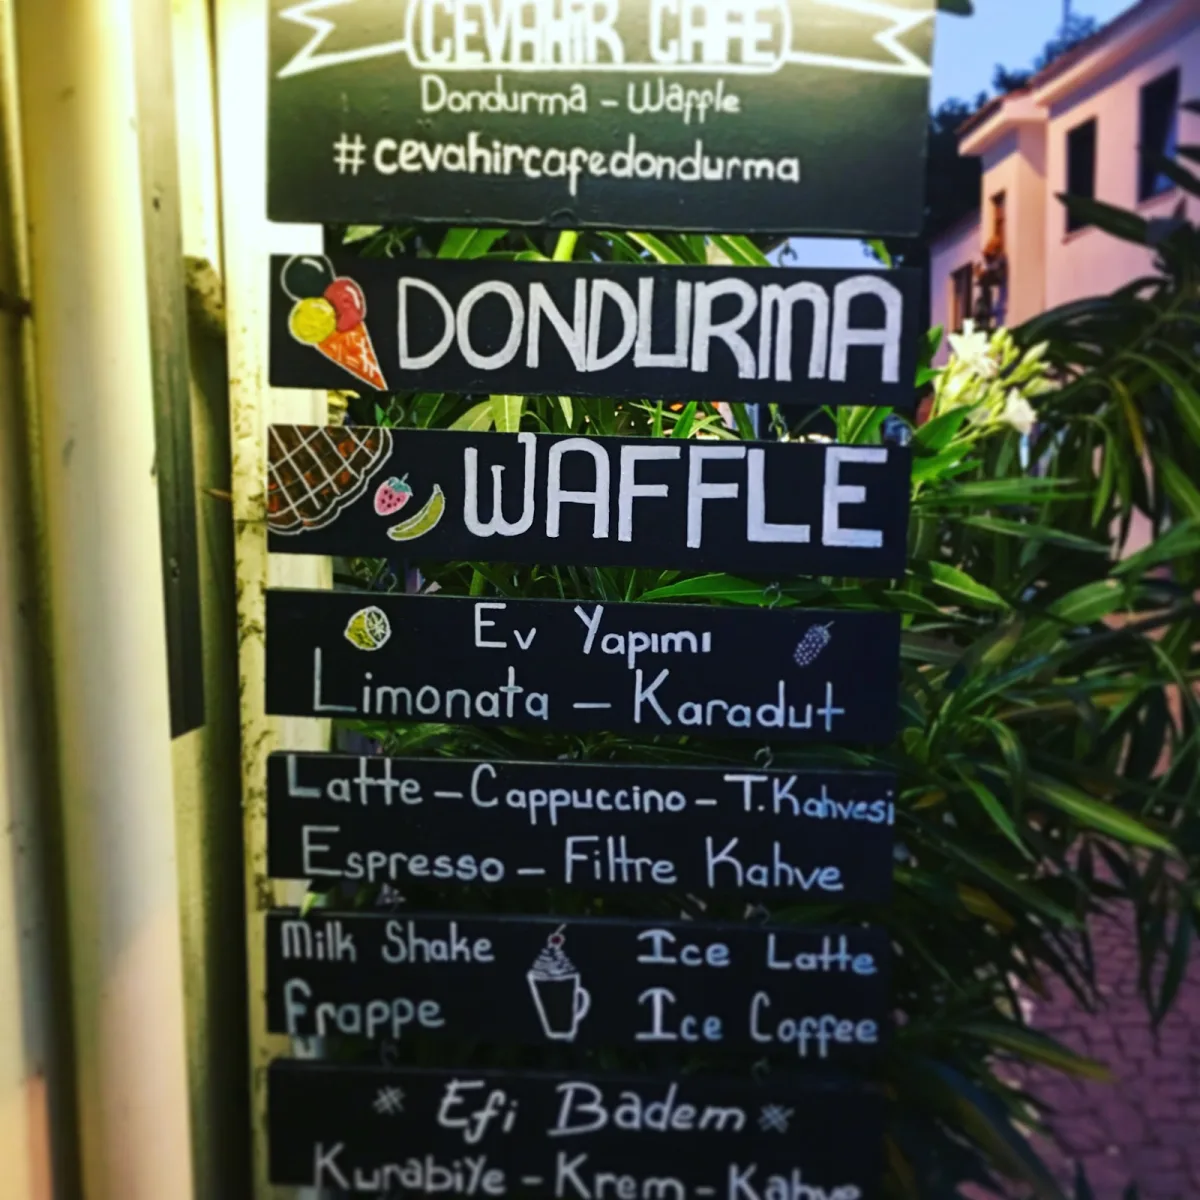 CEVAHİR CAFE
Dondurma - Waffle
#cevahircafedondurma
DONDURMA
WAFFLE
Ev Yapımı
Limonata - Karadut
Latte - Cappuccino - T.Kahvesi
Espresso - Filtre Kahve
Milk Shake
Frappe
Ice Latte
Ice Coffee
* Efi Badem *
Kurabiye - Krem - Kahve